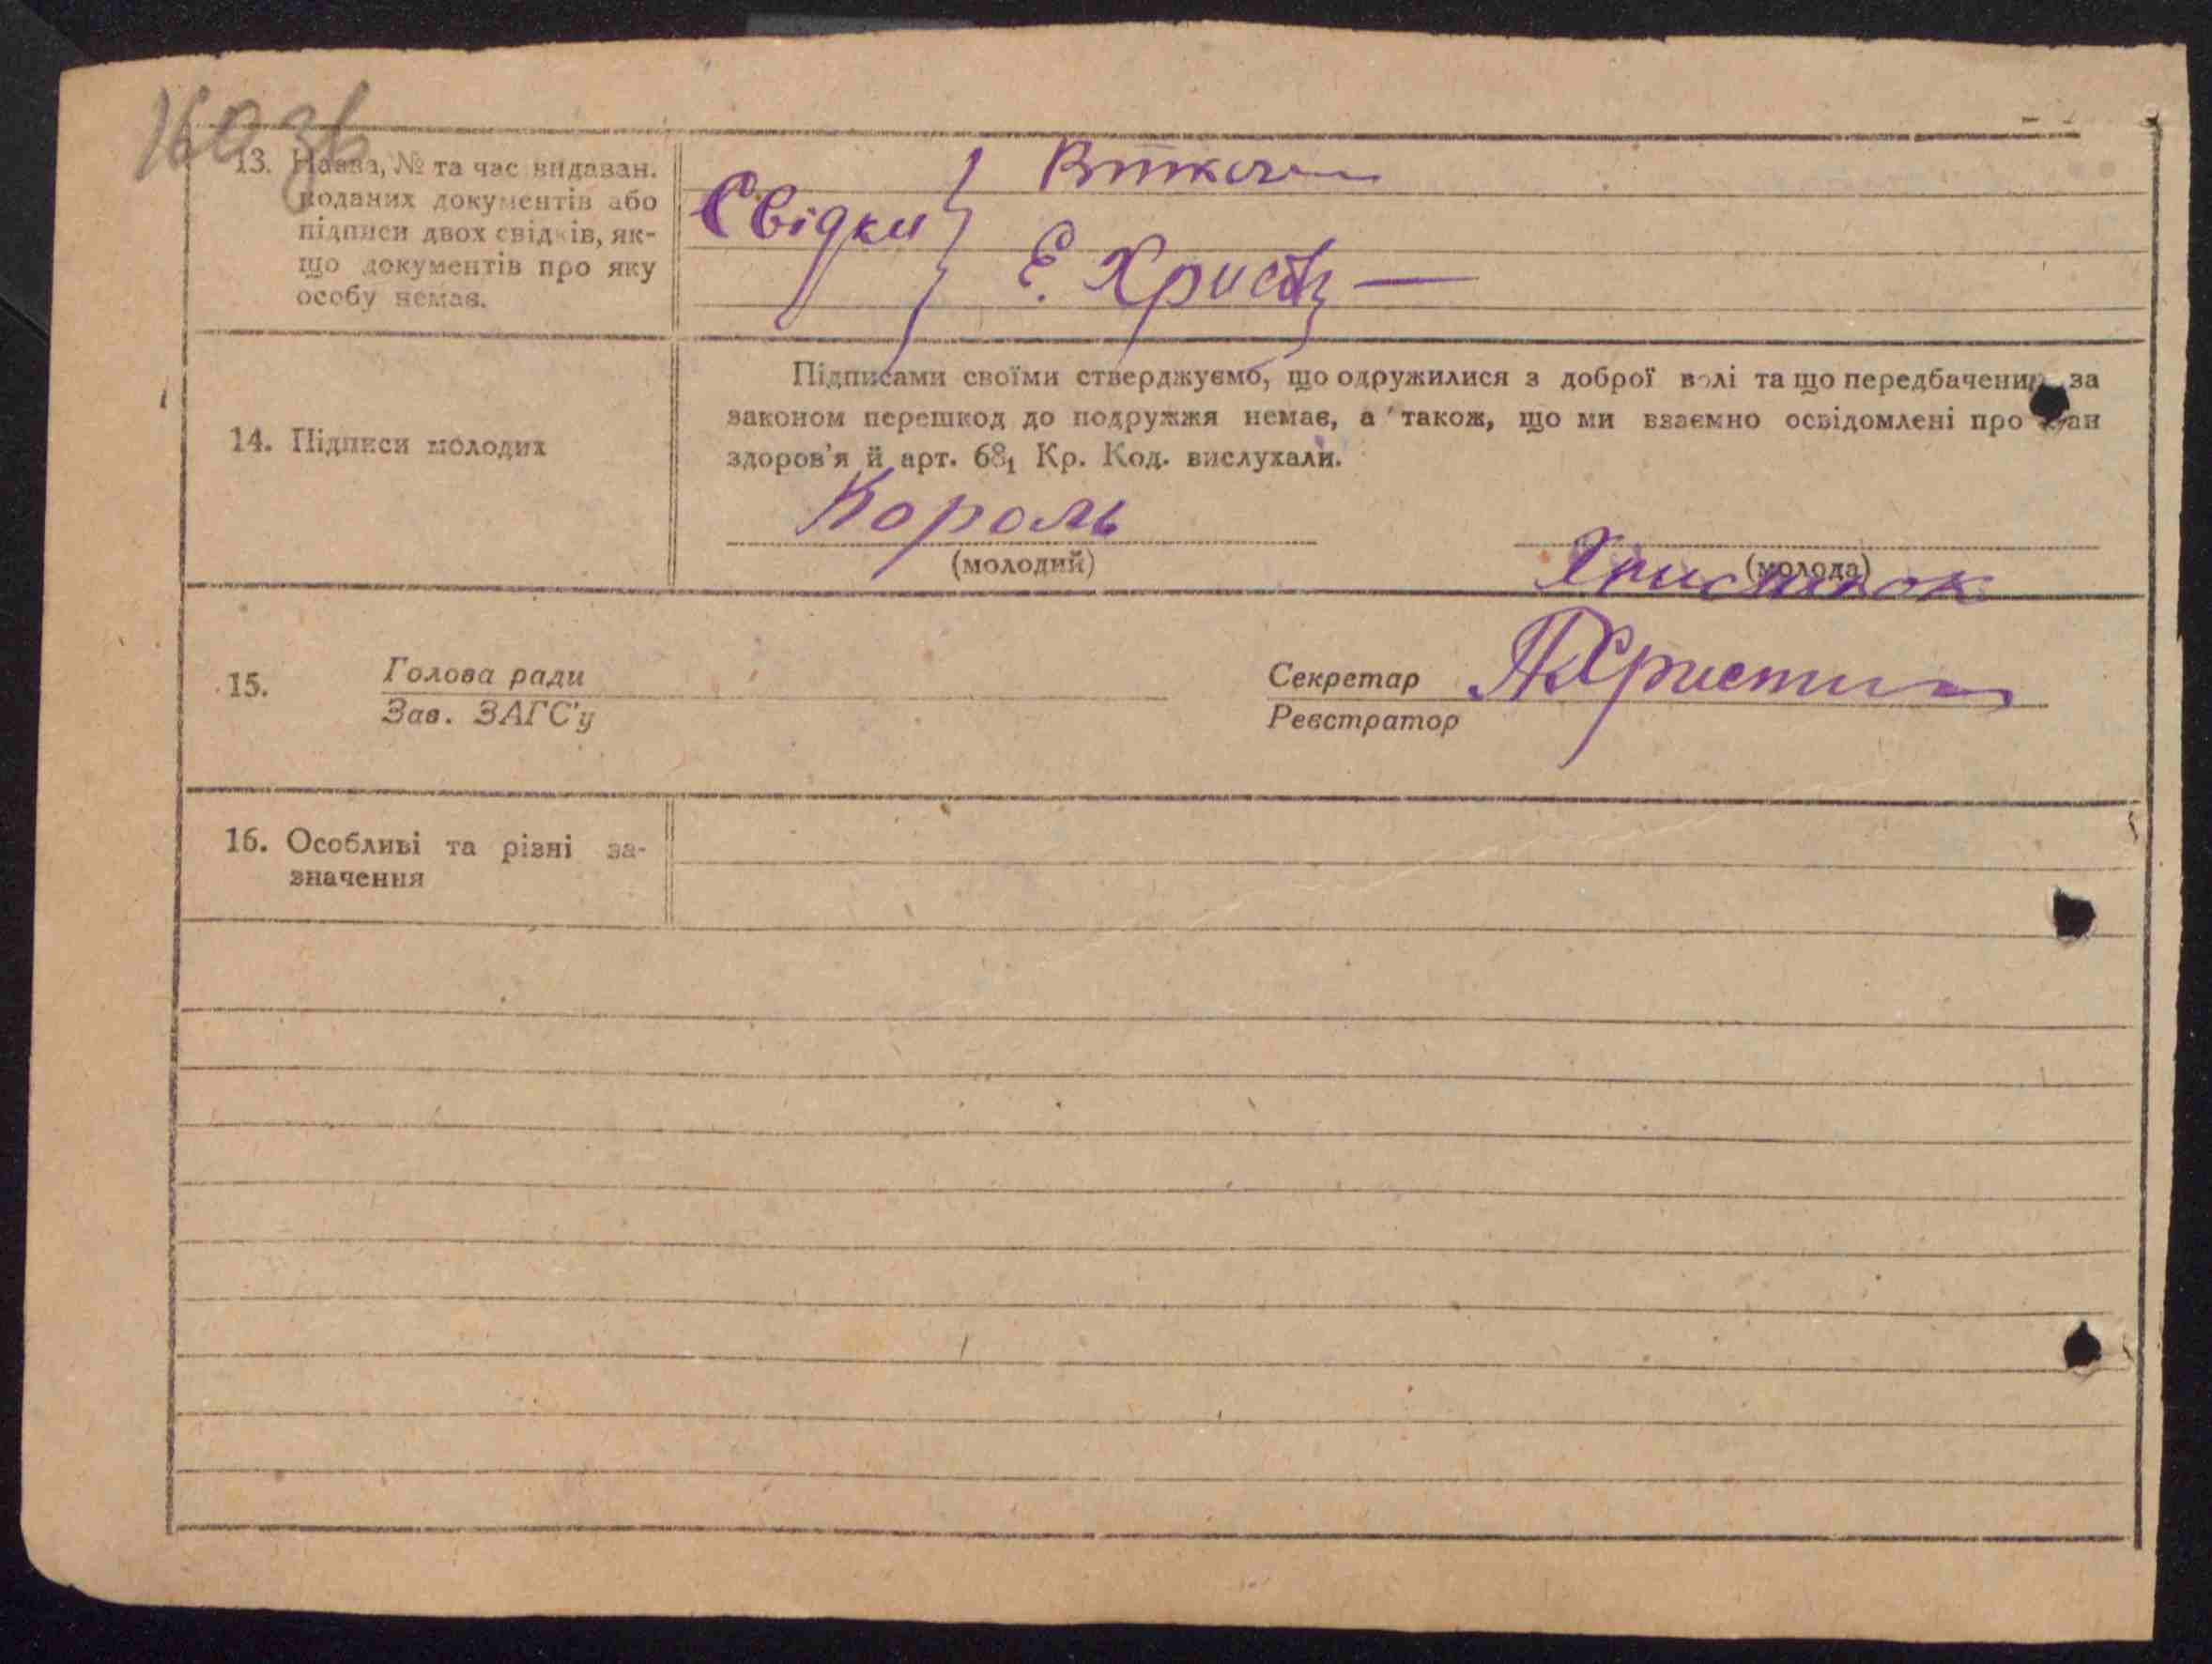 13. Назва, № та час видаван.
поданих документів або
підписи двох свідків, як-
що документів про яку
особу немає.
Свідки
Е. Христ
14. Підписи молодих
Підписами своїми стверджуємо, що одружилися з доброї волі та що передбачених за
законом перешкод до подружжя немає, а також, що ми взаємно освідомлені про стан
здоров'я й арт. 68₁ Кр. Код. вислухали.
Король
(молодий)
(молода)
15.
Голова ради
Зав. ЗАГС'у
Секретар
Реєстратор
16. Особливі та різні за-
значення